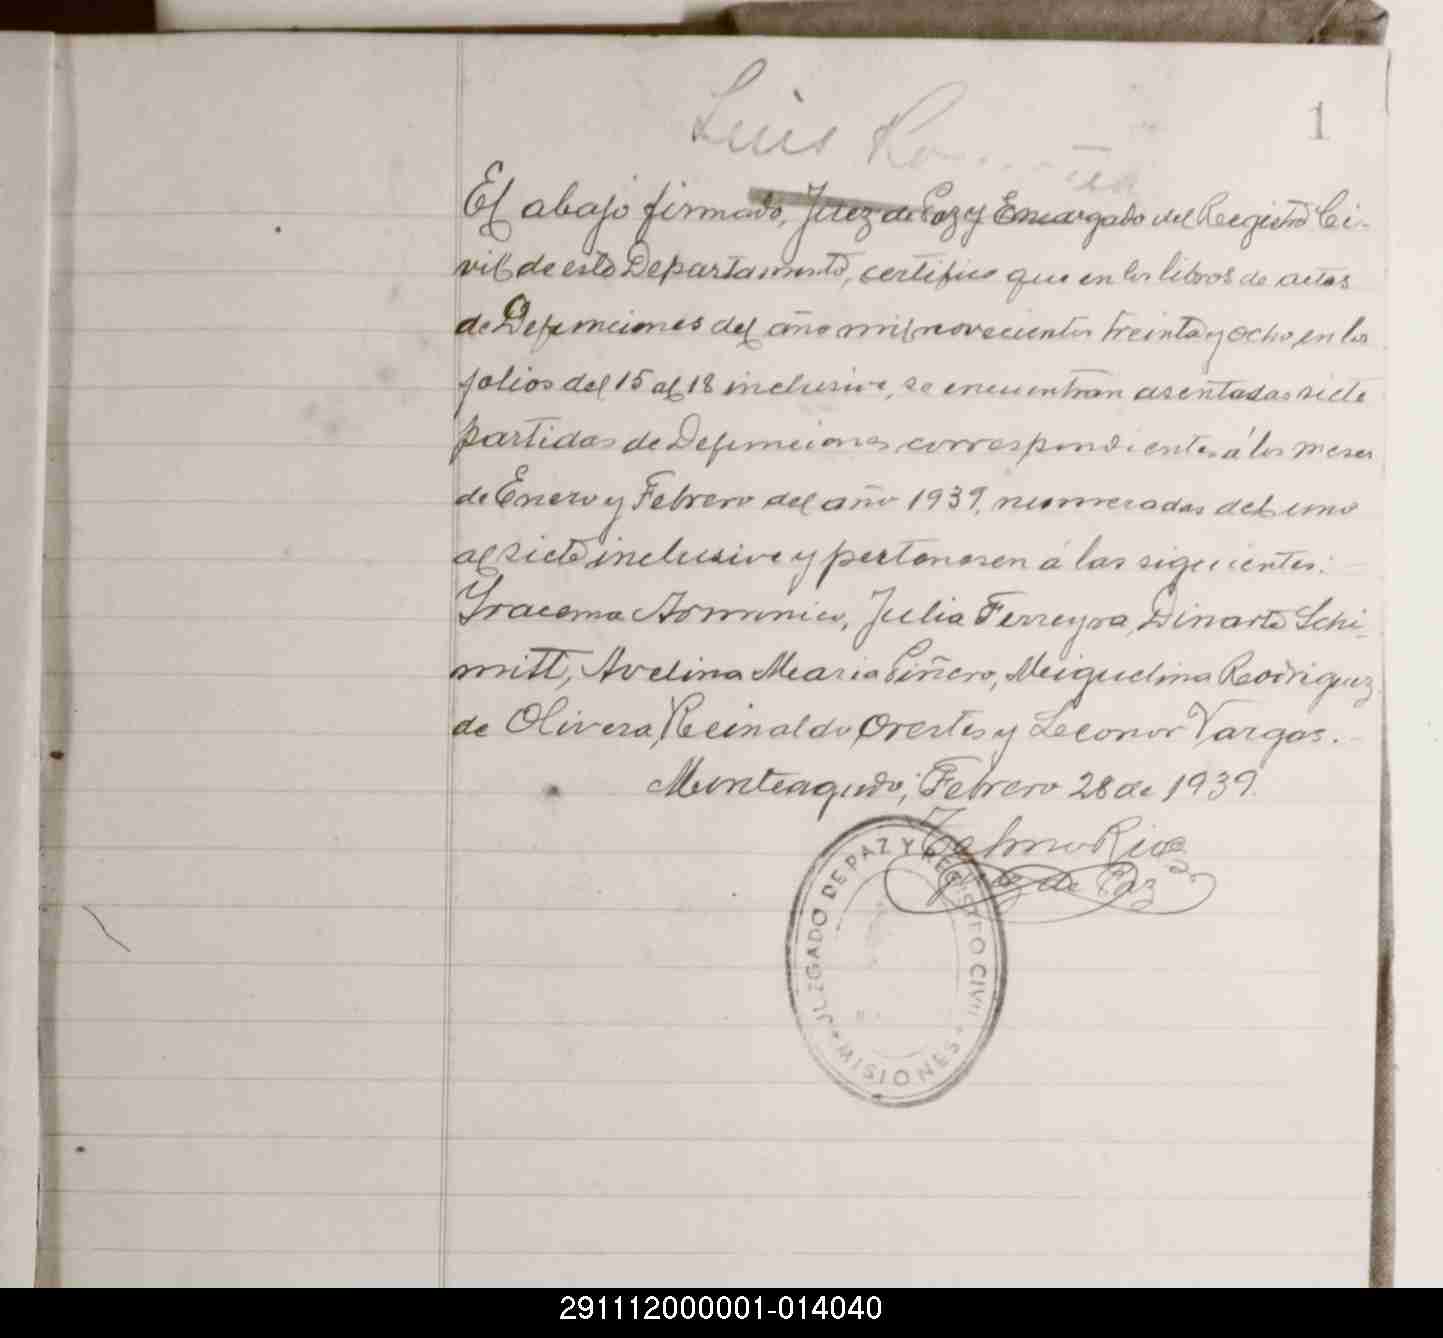 1
Luis
El abajo firmado, Juez de Paz y Encargado del Registro Ci-
vil de este Departamento, certifico que en los libros de actas
de Defunciones del año mil novecientos treinta y ocho, en los
folios del 15 al 18 inclusive, se encuentran asentadas siete
partidas de Defunciones correspondientes á los meses
de Enero y Febrero del año 1939, numeradas del uno
al siete inclusive y pertenesen á las siguientes:
Yracema Julia Ferreyra, Dinarte Schi-
mitt, Avelina Maria Piñero, Meiguelina Rodriguez
de Olivera, Reinaldo Orestes y Leonor Vargas.-
Monteagudo, Febrero 28 de 1939.
Telmo Rios
Juez de Paz
JUZGADO DE PAZ Y REGISTRO CIVIL
* MISIONES *
291112000001-014040